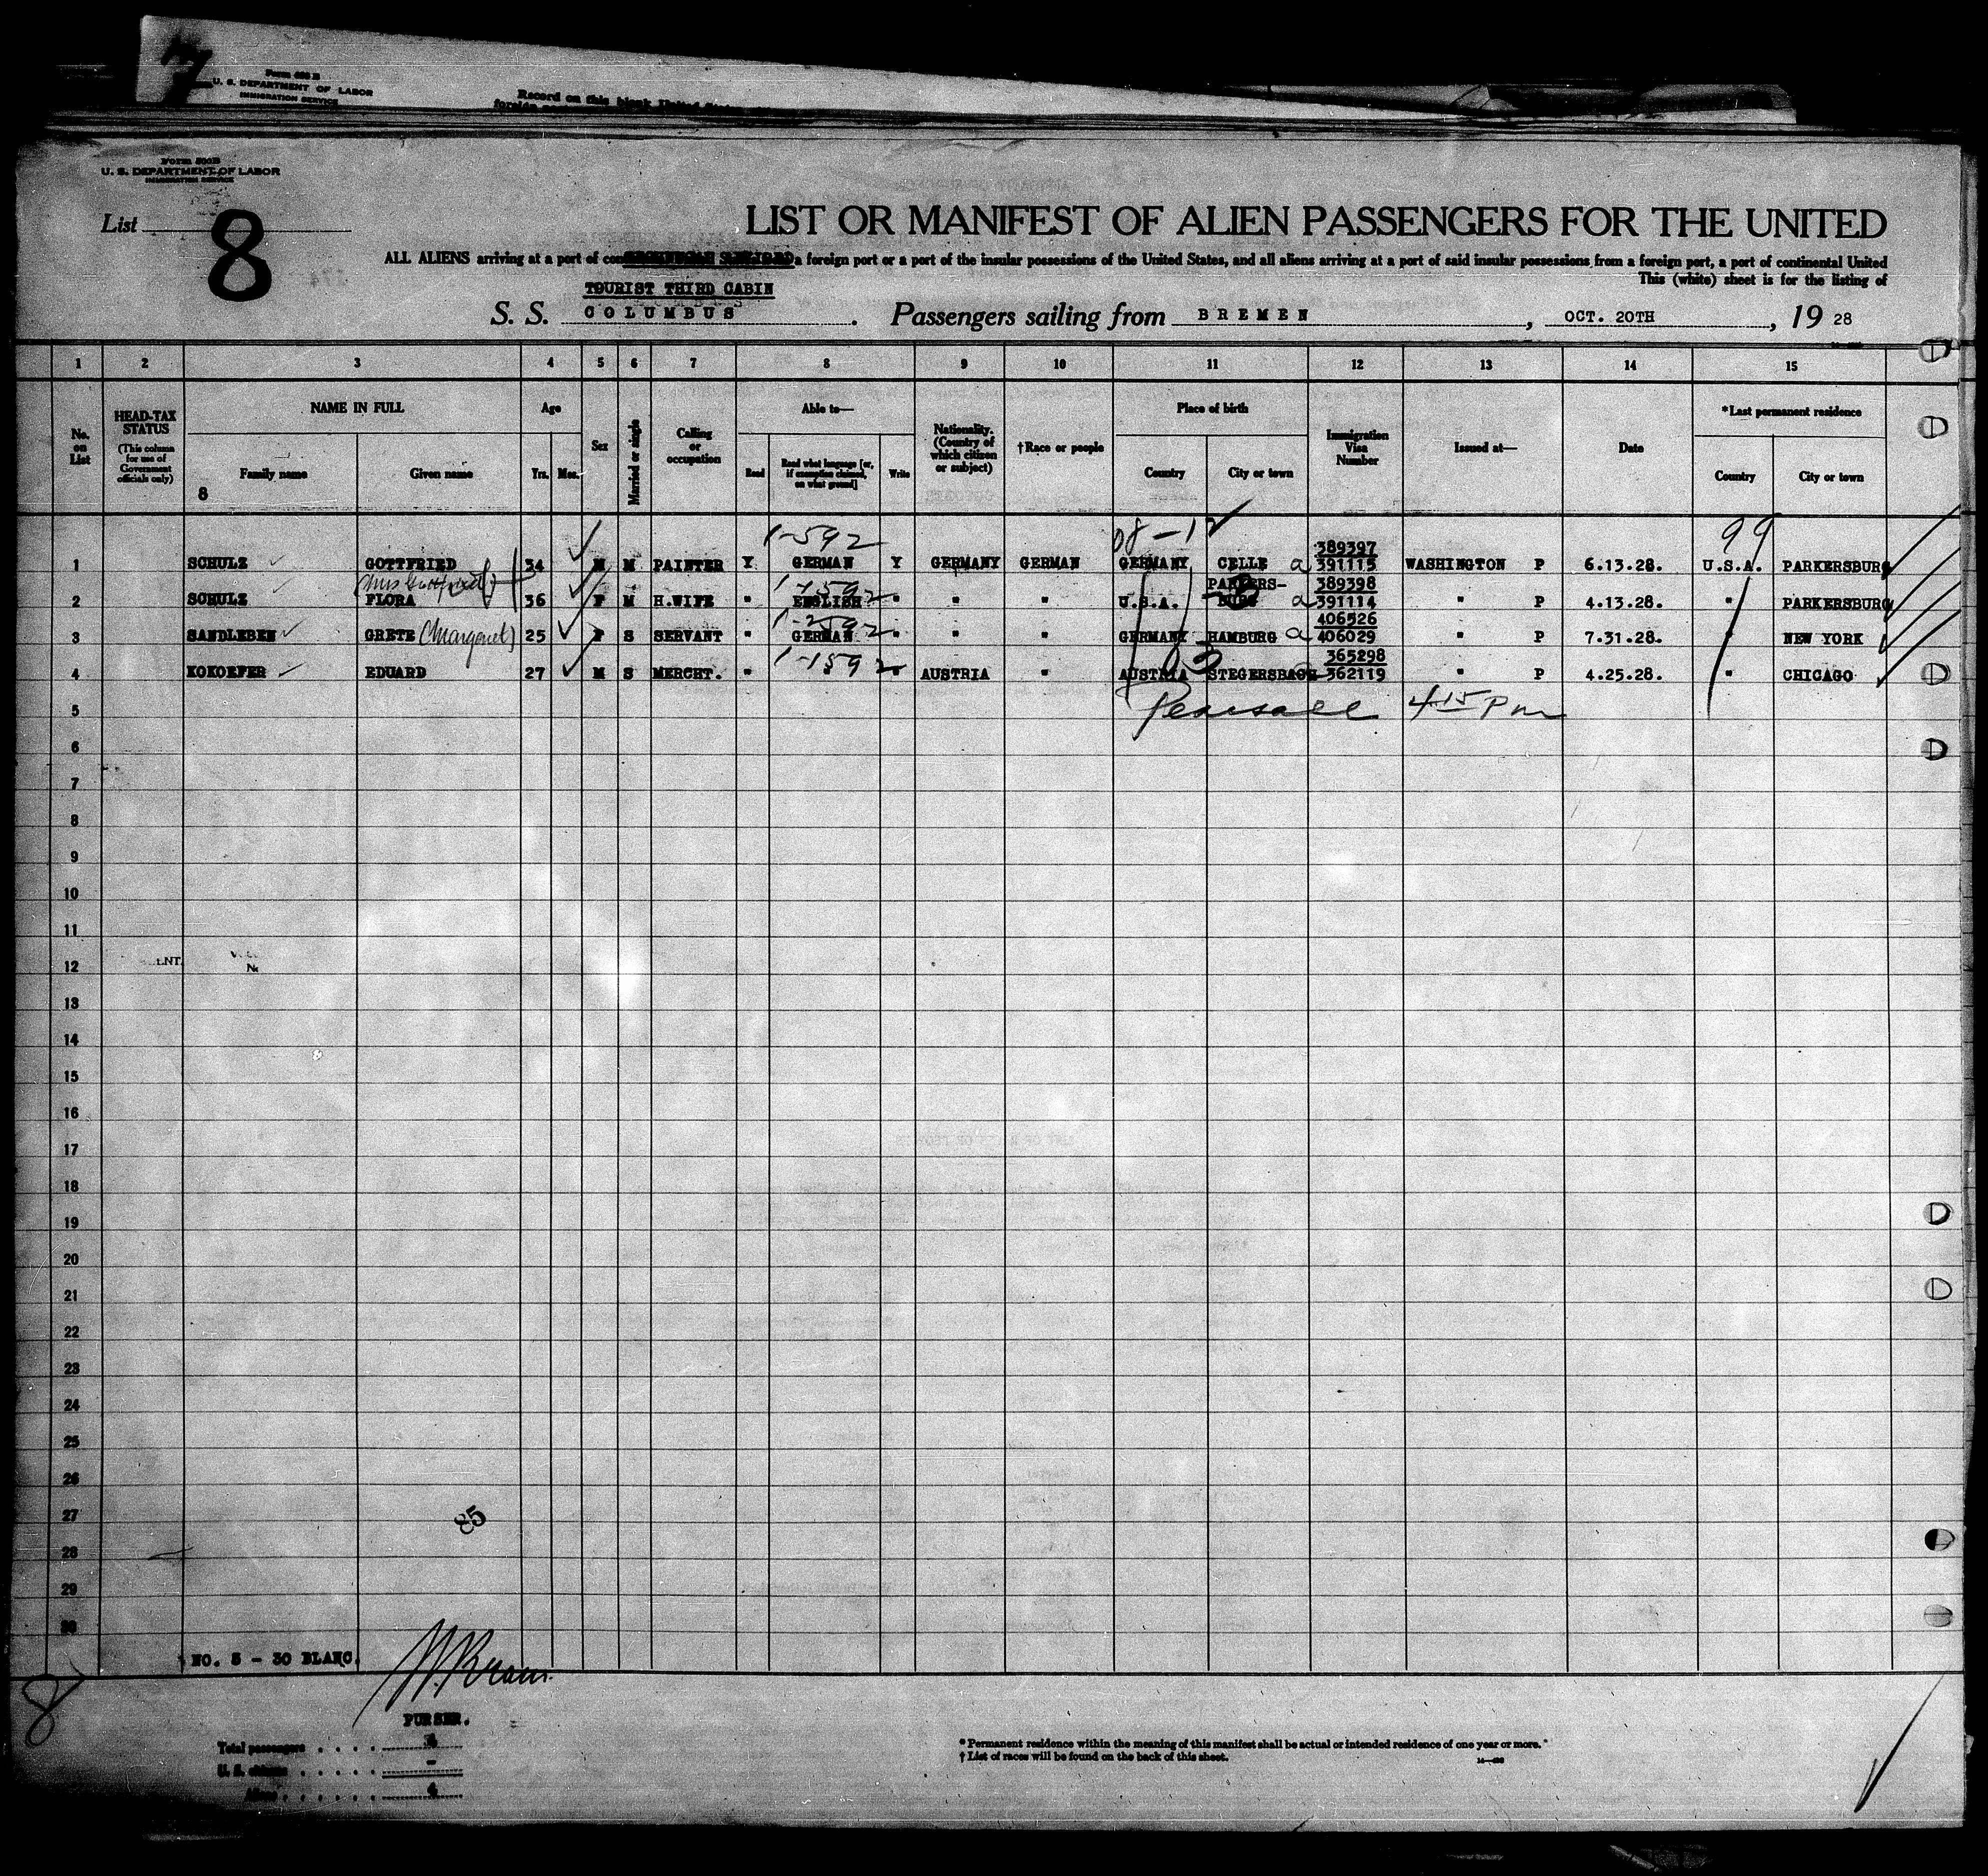 7
Form 500 B
U. S. DEPARTMENT OF LABOR
IMMIGRATION SERVICE
Record on this blank United States
Form 500B
U. S. DEPARTMENT OF LABOR
IMMIGRATION SERVICE
List 8
LIST OR MANIFEST OF ALIEN PASSENGERS FOR THE UNITED
ALL ALIENS arriving at a port of a foreign port or a port of the insular possessions of the United States, and all aliens arriving at a port of said insular possessions from a foreign port, a port of continental United
This (white) sheet is for the listing of
TOURIST THIRD CABIN
S. S. COLUMBUS. Passengers sailing from BREMEN, OCT. 20TH, 19 28
1 2 3 4 5 6 7 8 9 10 11 12 13 14 15
No. on List
HEAD-TAX STATUS
(This column for use of Government officials only)
NAME IN FULL
Family name
Given name
8
Age
Yrs. Mos.
Sex
Married or single
Calling or occupation
Able to—
Read
Read what language [or, if exemption claimed, on what ground]
Write
Nationality. (Country of which citizen or subject)
†Race or people
Place of birth
Country
City or town
Immigration Visa Number
Issued at—
Date
*Last permanent residence
Country
City or town
1-592 08-12 99
389397
1 SCHULZ GOTTFRIED 34 M M PAINTER Y GERMAN Y GERMANY GERMAN GERMANY CELLE a 391115 WASHINGTON P 6.13.28. U.S.A. PARKERSBURG
(Mrs Gottfried) 1-1592 PARKERS- 389398
2 SCHULZ FLORA 36 F M H.WIFE " ENGLISH " " " U.S.A. BURG a 391114 " P 4.13.28. " PARKERSBURG
1-2592 406526
3 SANDLEBEN GRETE (Margaret) 25 F S SERVANT " GERMAN " " " GERMANY HAMBURG a 406029 " P 7.31.28. " NEW YORK
365298
4 KOKOEFER EDUARD 27 M S MERCHT. " 1-1592 " AUSTRIA " AUSTRIA 03 STEGERSBACH 362119 " P 4.25.28. " CHICAGO
5 Pearsall 4 15 Pm
6
7
8
9
10
11
12
13
14
15
16
17
18
19
20
21
22
23
24
25
26
27
85
28
29
30
NO. 5 - 30 BLANC.
8
PURSER.
Total passengers . . . . 4
U. S. citizens . . . . . -
Aliens . . . . . . 4
* Permanent residence within the meaning of this manifest shall be actual or intended residence of one year or more.
† List of races will be found on the back of this sheet.